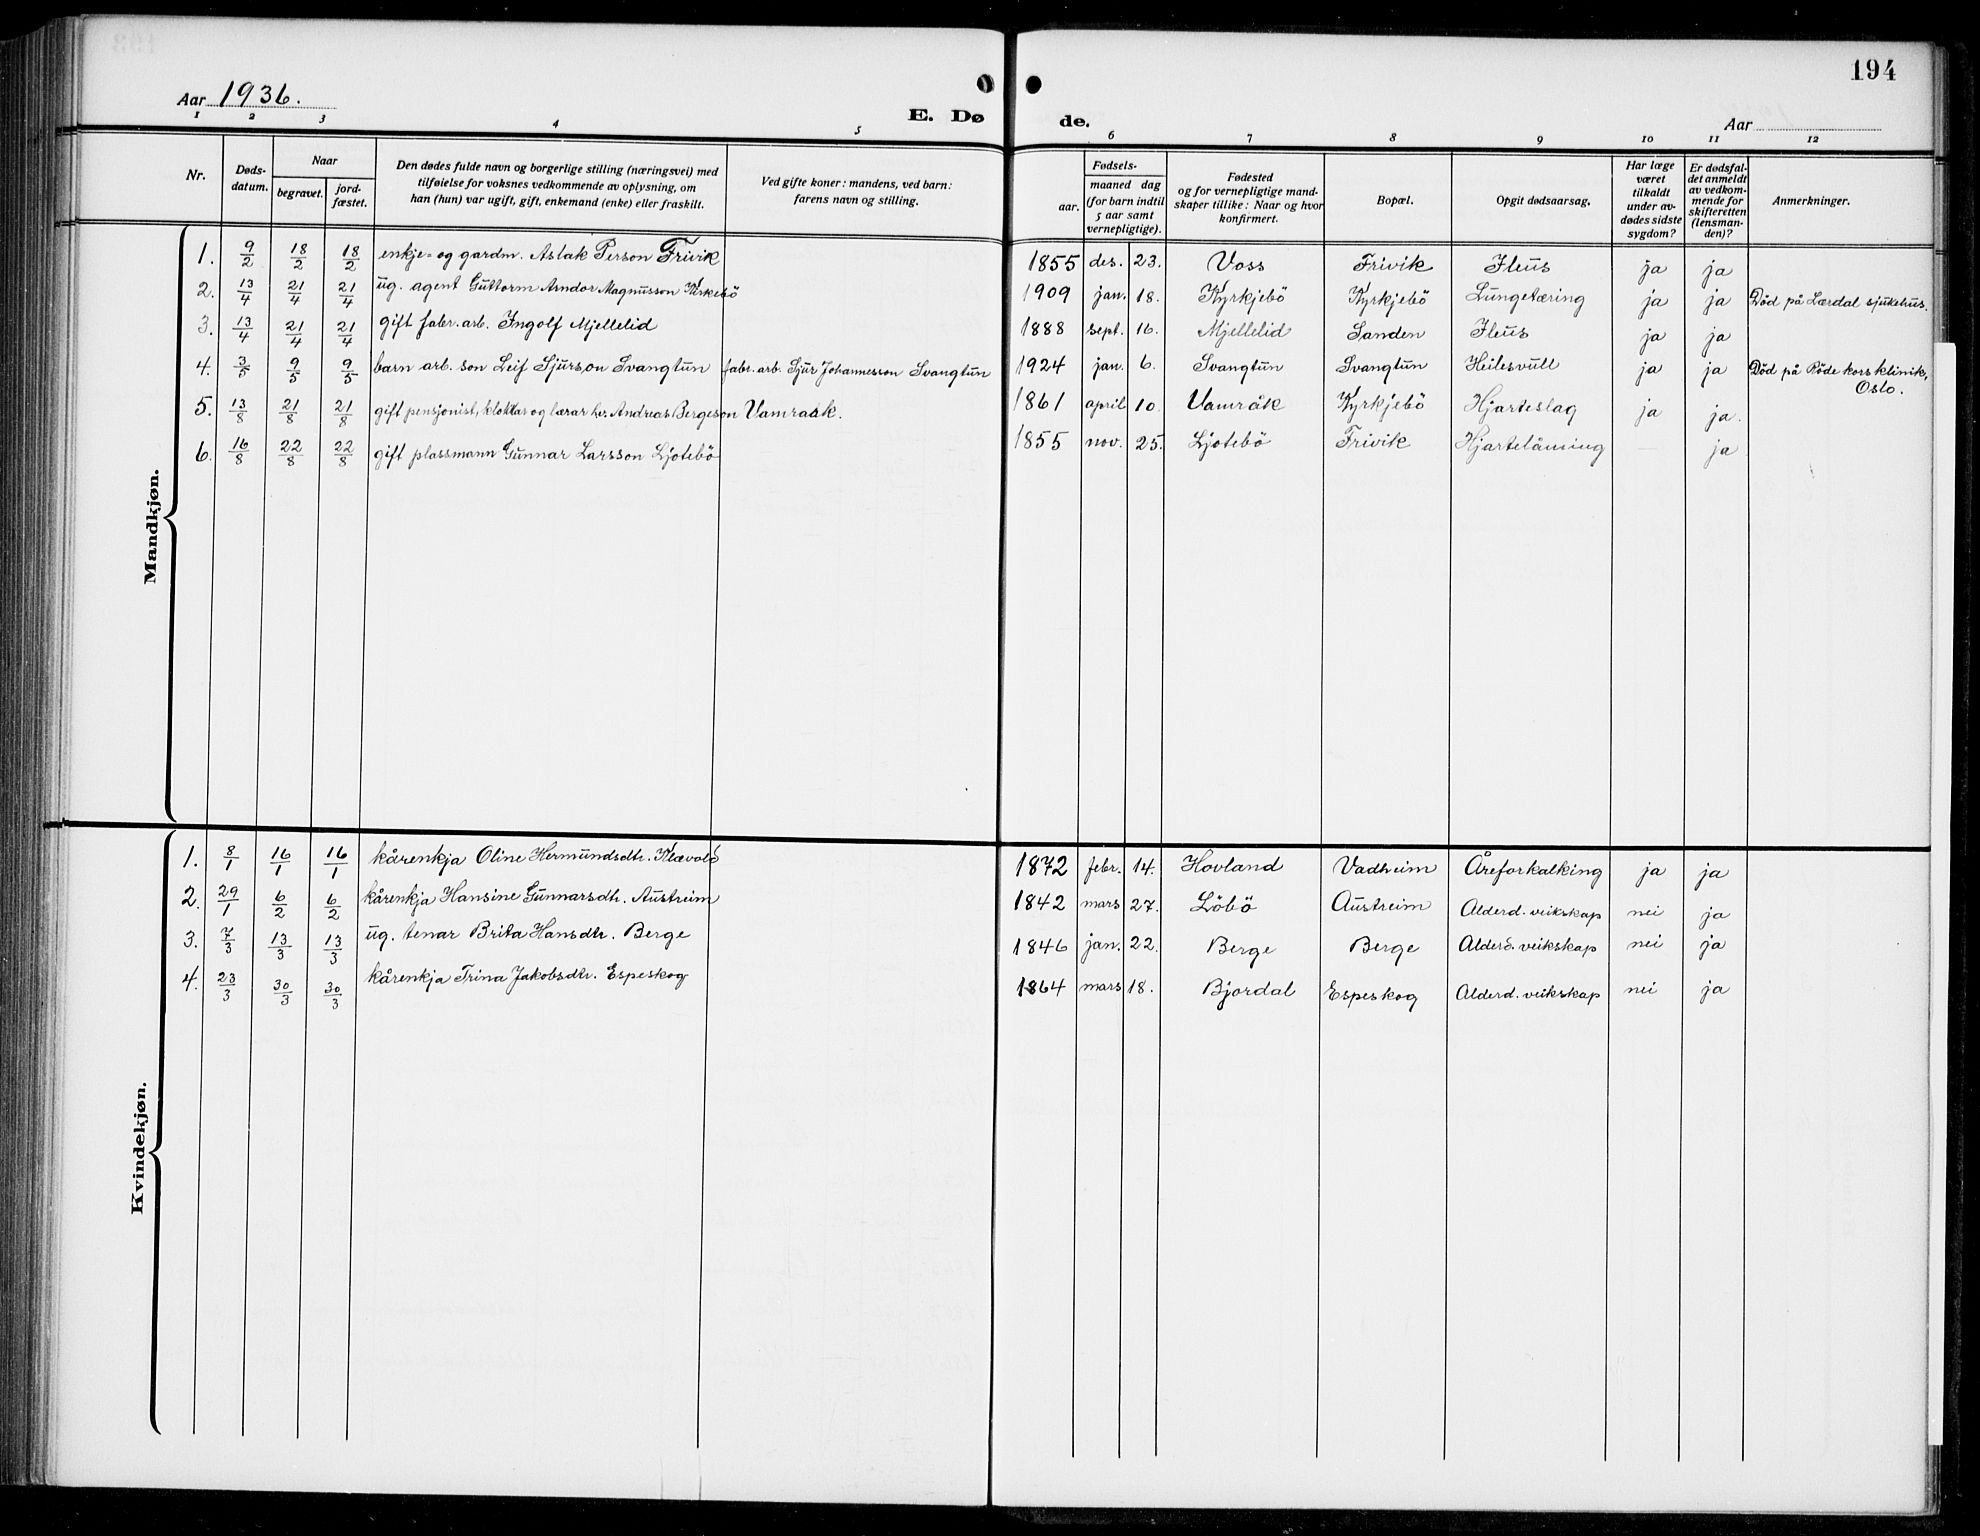 194
Aar 1936.
E. Døde.
Aar
1 2 3 4 5 6 7 8 9 10 11 12
Nr.
Døds-datum.
Naar
begravet.
jord-fæstet.
Den dødes fulde navn og borgerlige stilling (næringsvei) med
tilføielse for voksnes vedkommende av oplysning, om
han (hun) var ugift, gift, enkemand (enke) eller fraskilt.
Ved gifte koner: mandens, ved barn:
farens navn og stilling.
Fødsels-
aar.
maaned dag
(for barn indtil
5 aar samt
vernepligtige).
Fødested
og for vernepligtige mand-
skaper tillike: Naar og hvor
konfirmert.
Bopæl.
Opgit dødsaarsag.
Har læge
været
tilkaldt
under av-
dødes sidste
sygdom?
Er dødsfal-
det anmeldt
av vedkom-
mende for
skifteretten
(lensman-
den)?
Anmerkninger.
Mandkjøn.
1. 9/2 18/2 18/2 enkje- og gardm. Aslak Person Frivik 1855 des. 23. Voss Frivik Ileus ja ja
2. 13/4 21/4 21/4 ug. agent Guttorm Arndor Magnusson Kirkebö 1909 jan. 18. Kyrkjebö Kyrkjebö Lungetæring ja ja Död på Lærdal sjukehus.
3. 13/4 21/4 21/4 gift fabr. arb. Ingolf Mjellelid 1888 sept. 16. Mjellelid Sanden Ileus ja ja
4. 3/5 9/5 9/5 barn arb. son Leif Sjurson Svangtun fabr. arb. Sjur Johannesson Svangtun 1924 jan. 6. Svangtun Svangtun Heilesvull ja ja Död på Röde kors klinik,
Oslo.
5. 13/8 21/8 21/8 gift pensjonist, klokkar og lærar hr. Andreas Bergeson Vamraak. 1861 april 10. Vamråk Kyrkjebö Hjarteslag ja ja.
6. 16/8 22/8 22/8 gift plassmann Gunnar Larsson Ljotebö 1855 nov. 25. Ljotebö Frivik Hjartelåming — ja
Kvindekjøn.
1. 8/1 16/1 16/1 kårenkja Oline Hermundsdtr. Klævold 1872 febr. 14. Hovland Vadheim Åreforkalking ja ja
2. 29/1 6/2 6/2 kårenkja Hansine Gunnarsdtr. Austreim 1842 mars 27. Löbö Austreim Alderd. veikskap nei ja
3. 7/3 13/3 13/3 ug. tenar Brita Hansdtr. Berge 1846 jan. 22. Berge Berge Alderd. veikskap nei ja
4. 23/3 30/3 30/3 kårenkja Trina Jakobsdtr. Espeskog 1864 mars 18. Bjordal Espeskog Alderd. veikskap nei ja